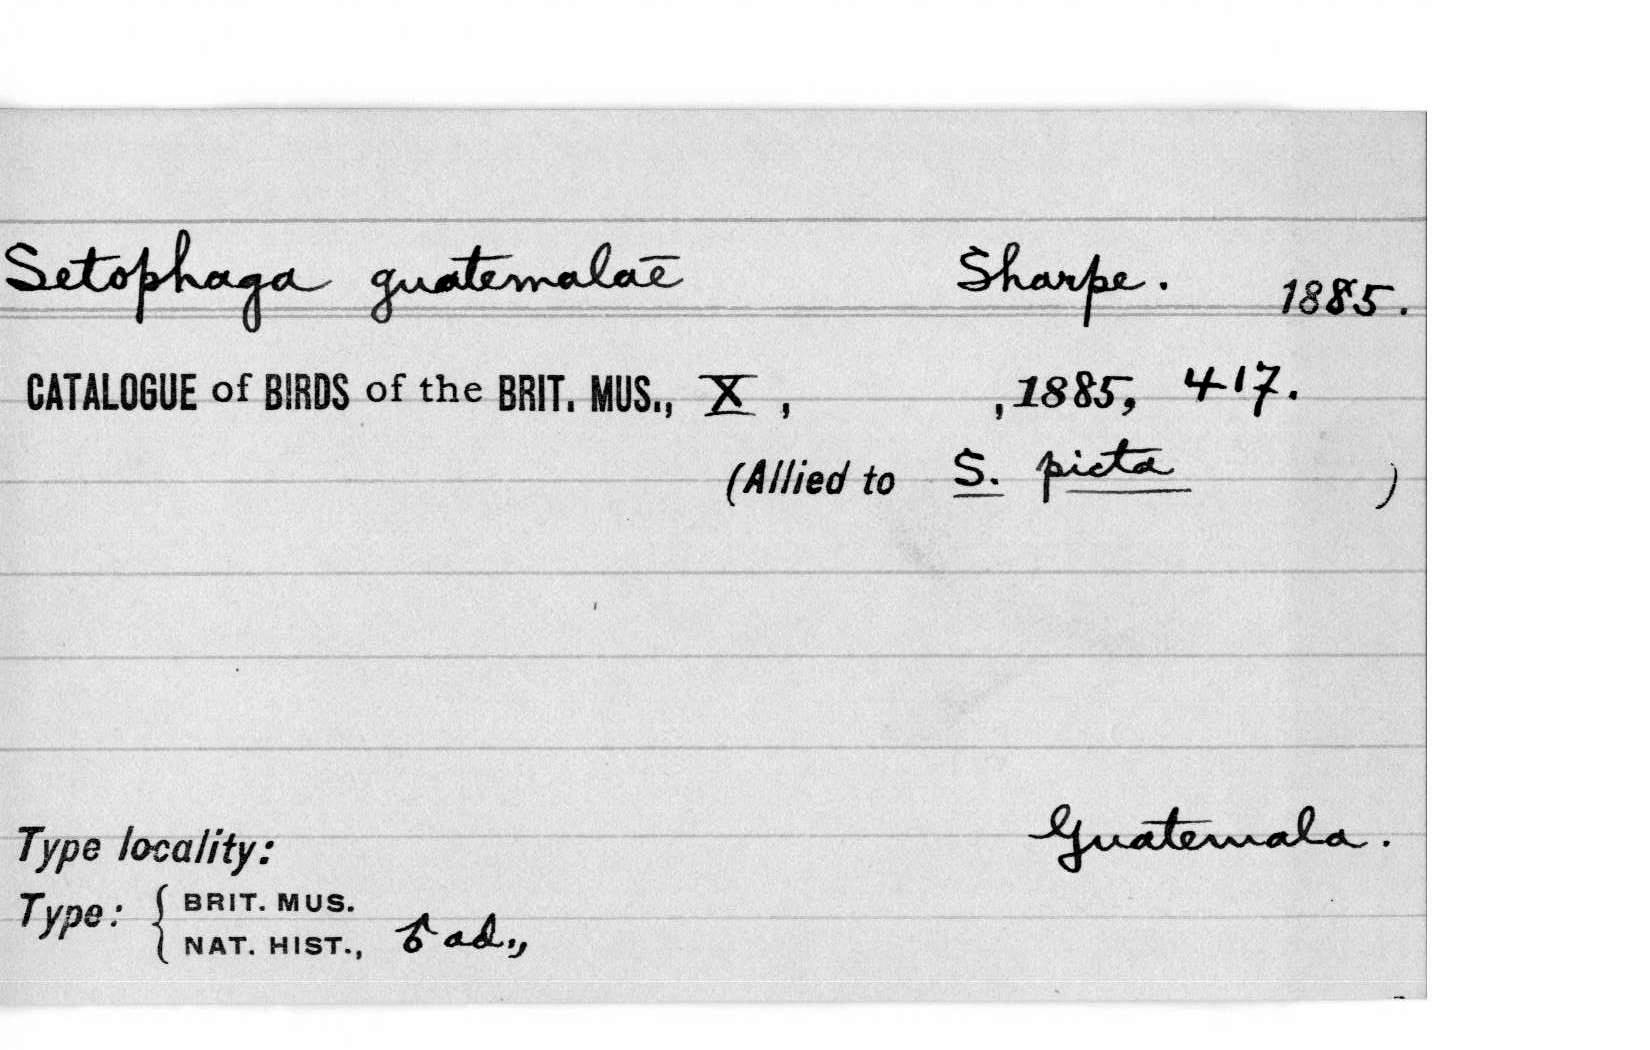 Setophaga guatemalae Sharpe. 1885.
CATALOGUE of BIRDS of the BRIT. MUS., X, , 1885, 417.
(Allied to S. picta )
Type locality: Guatemala.
Type: { BRIT. MUS.
NAT. HIST., ♂ ad.,